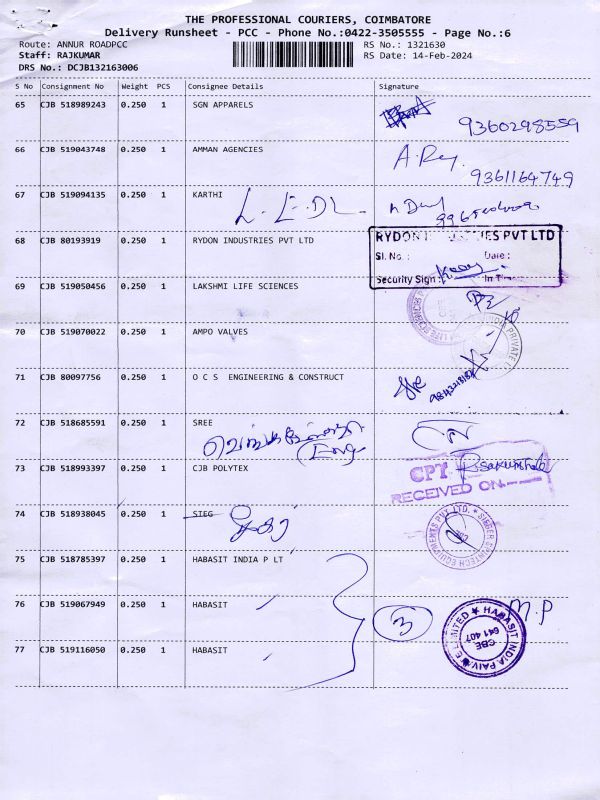 THE PROFESSIONAL COURIERS, COIMBATORE
Delivery Runsheet - PCC - Phone No.:0422-3505555 - Page No.:6
Route: ANNUR ROADPCC RS No.: 1321630
Staff: RAJKUMAR RS Date: 14-Feb-2024
DRS No.: DCJB132163006
S No Consignment No Weight PCS Consignee Details Signature
65 CJB 518989243 0.250 1 SGN APPARELS
9360298559
66 CJB 519043748 0.250 1 AMMAN AGENCIES
9361164749
67 CJB 519094135 0.250 1 KARTHI
68 CJB 80193919 0.250 1 RYDON INDUSTRIES PVT LTD
RYDON IES PVT LTD
Sl. No. : Date :
Security Sign
69 CJB 519050456 0.250 1 LAKSHMI LIFE SCIENCES
70 CJB 519070022 0.250 1 AMPO VALVES
71 CJB 80097756 0.250 1 O C S ENGINEERING & CONSTRUCT
72 CJB 518685591 0.250 1 SREE
73 CJB 518993397 0.250 1 CJB POLYTEX
CPT
RECEIVED ON
74 CJB 518938045 0.250 1 STEG
75 CJB 518785397 0.250 1 HABASIT INDIA P LT
76 CJB 519067949 0.250 1 HABASIT
3 M.P
HABASIT INDIA PAIVATE LIMITED
CBE
641 407
77 CJB 519116050 0.250 1 HABASIT